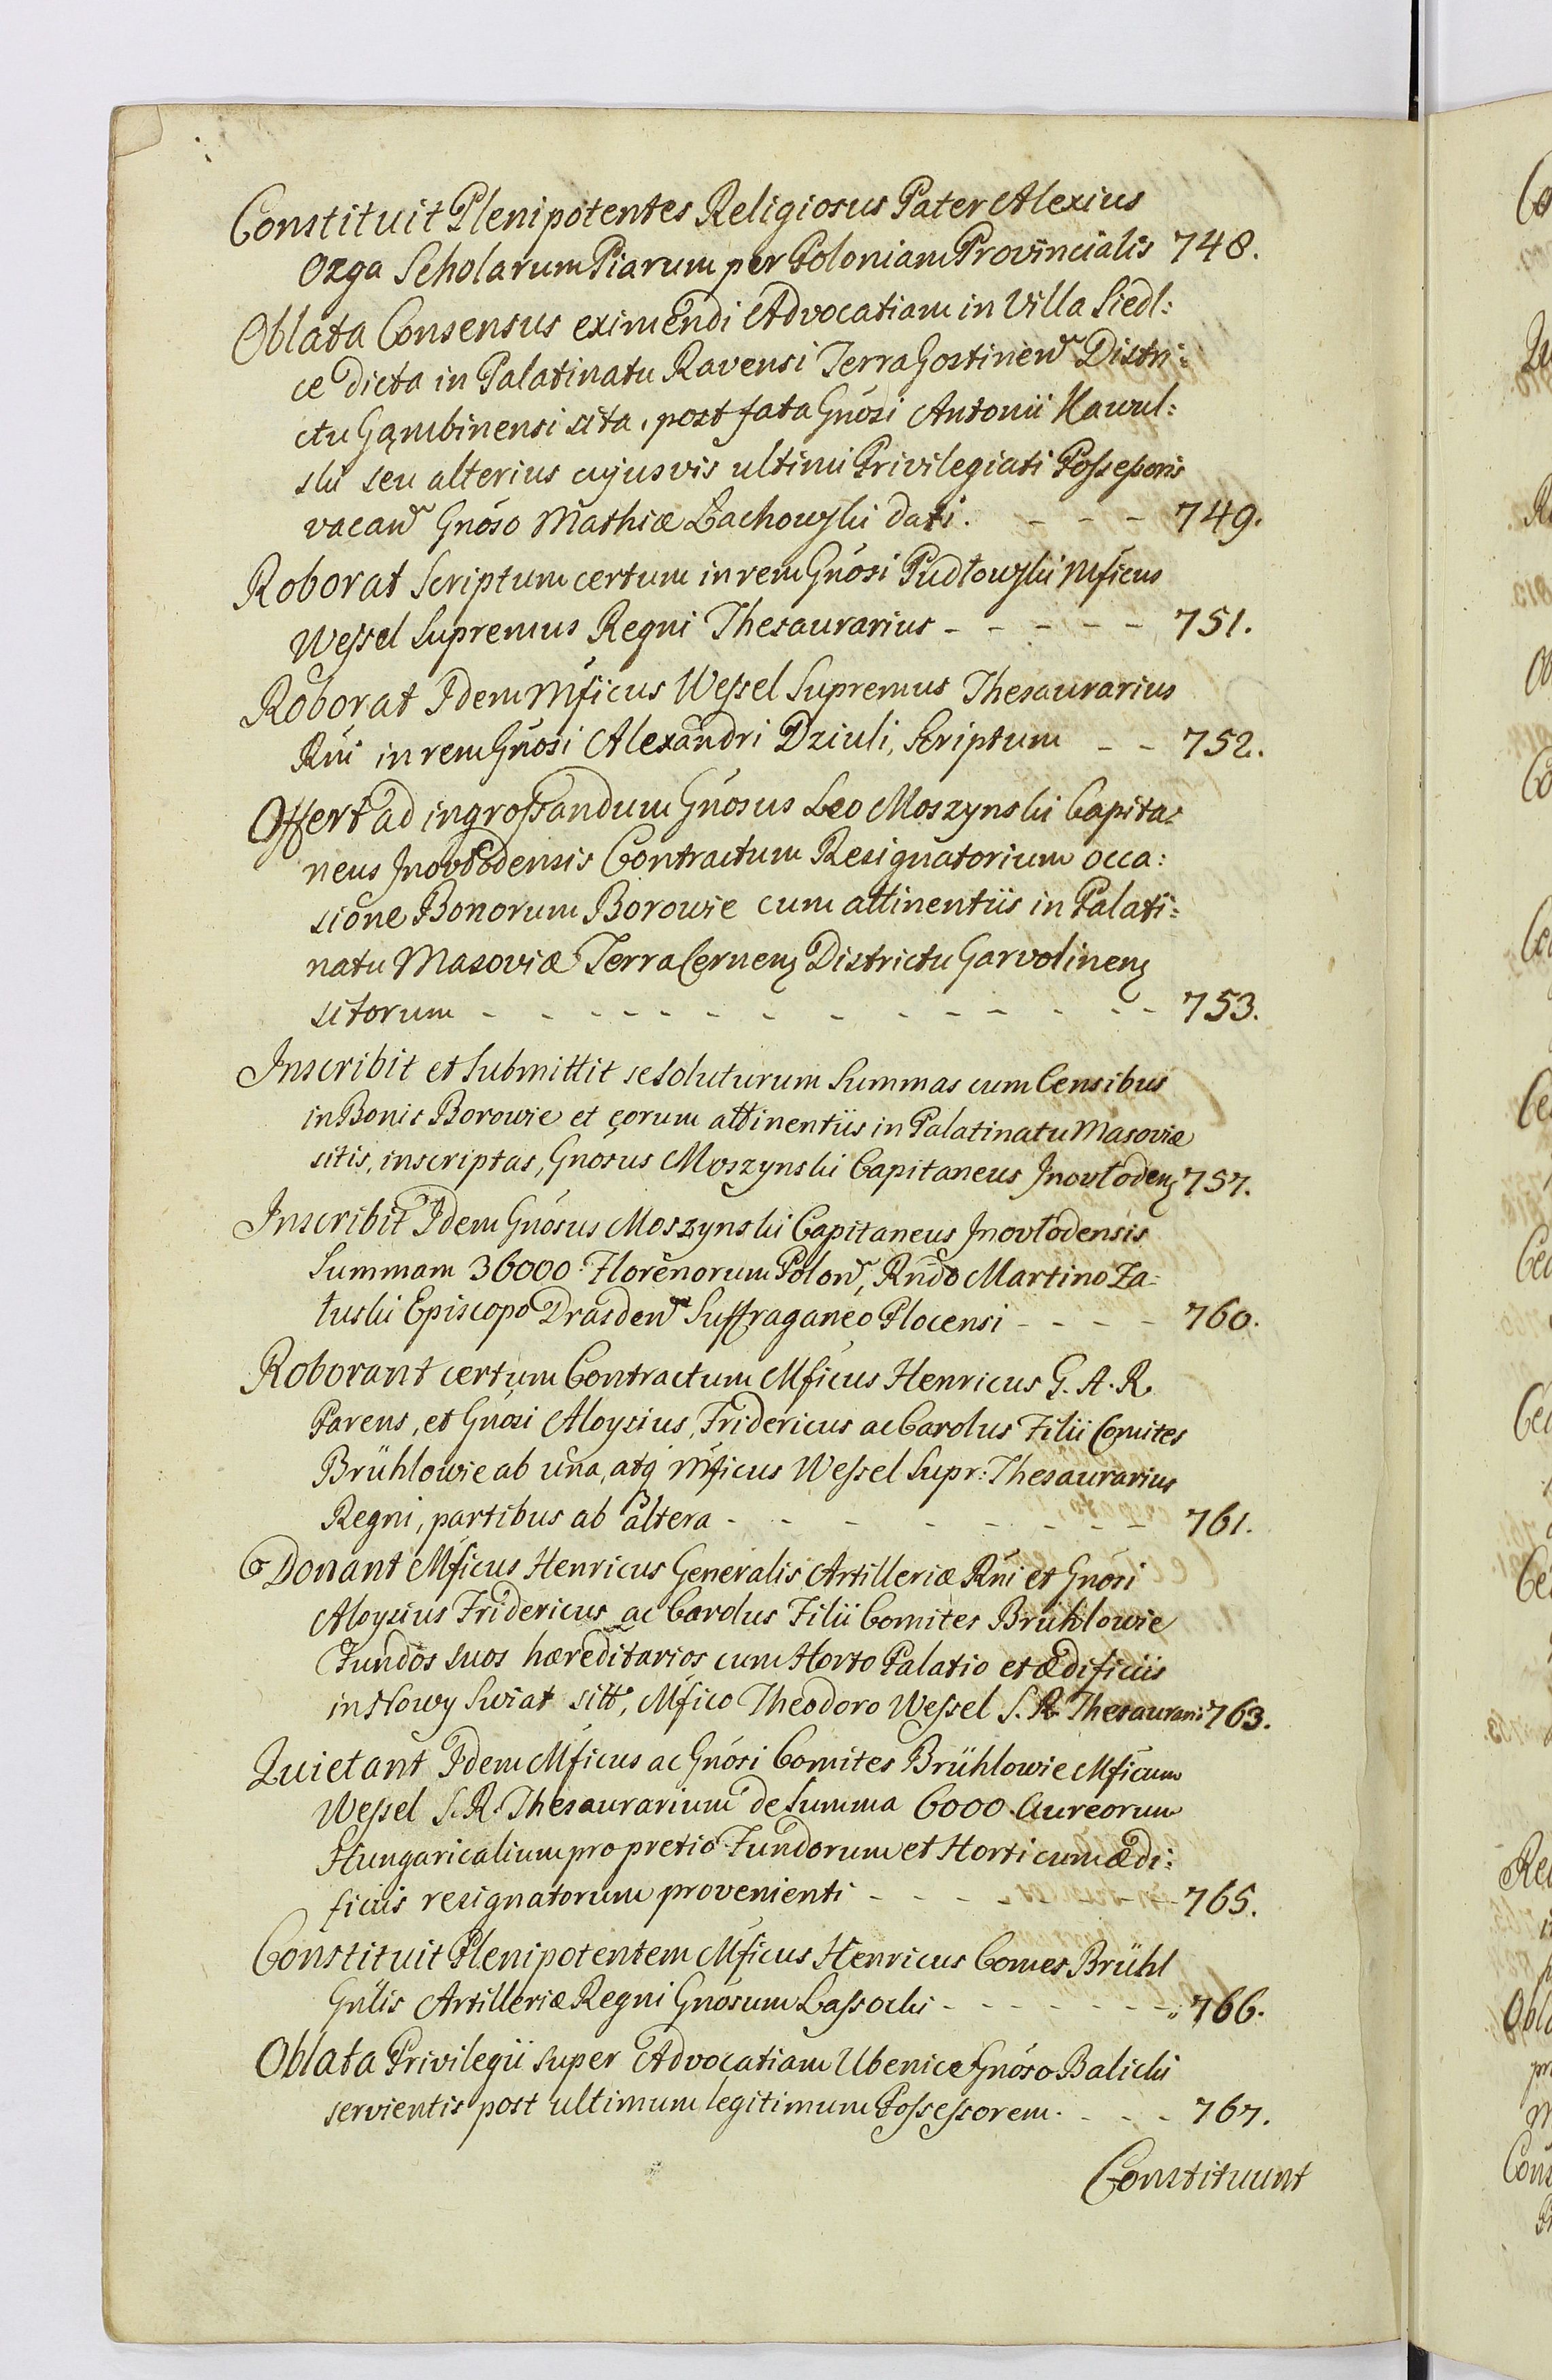 Constituit Plenipotentes Religiosus Pater Alexius
Ozga Scholarum Piarum per Poloniam Provincialis 748.
Oblata Consensus eximendi Advocatiam in Villa Siedl:
ce dicta in Palatinatu Ravensi Terra Gostinen Distri:
ctu Gąmbinensi sita, post fata Gnosi Antonii Kawul:
ski seu alterius cujusvis ultimi Privilegiati Possessoris
vacan Gnoso Mathiæ Łachowski dati. - - - 749.
Roborat Scriptum certum in rem Gnosi Pudłowski Mficus
Wessel Supremus Regni Thesaurarius - - - - - 751.
Roborat Idem Mficus Wessel Supremus Thesaurarius
Rni in rem Gnosi Alexandri Dziuli, Scriptum - - 752.
Offert ad ingrossandum Gnosus Leo Moszynski Capita:
neus Inovłodensis Contractum Resignatorium occa:
sione Bonorum Borowie cum attinentiis in Palati:
natu Masoviæ Terra Cernenz Districtu Garvolinenz
sitorum - - - - - - - - - - - - - 753.
Inscribit et Submittit se soluturum Summas cum Censibus
in Bonis Borowie et eorum attinentiis in Palatinatu Masoviæ
sitis, inscriptas, Gnosus Moszynski Capitaneus Inovłodenz 757.
Inscribit Idem Gnosus Moszynski Capitaneus Inovłodensis
Summam 36000 Florenorum Polon, Rndo Martino Za-
łuski Episcopo Drasden Suffraganeo Plocensi - - - - 760.
Roborant certum Contractum Mficus Henricus G. A. R.
Parens, et Gnosi Aloysius, Fridericus ac Carolus Filii Comites
Brühlowie ab una, atq Mficus Wessel Supr: Thesaurarius
Regni, partibus ab altera - - - - - - - - 761.
Donant Mficus Henricus Generalis Artilleriæ Rni et Gnosi
Aloysius Fridericus ac Carolus Filii Comites Brühlowie
Fundos suos hæreditarios cum Horto Palatio et ædificiis
in Nowy Swiat sitt, Mfico Theodoro Wessel S. R. Thesaurari 763.
Quietant Idem Mficus ac Gnosi Comites Brühlowie Mficum
Wessel S. R. Thesaurarium de Summa 6000 Aureorum
Hungaricalium pro pretio Fundorum et Horti cum ædi:
ficiis resignatorum provenienti - - - - - - - 765.
Constituit Plenipotentem Mficus Henricus Comes Brühl
Gnlis Artilleriæ Regni Gnosum Lassocki - - - - - - - 766.
Oblata Privilegii super Advocatiam Ubenice Gnoso Balicki
servientis post ultimum legitimum Possessorem. - - - 767.
Constituunt